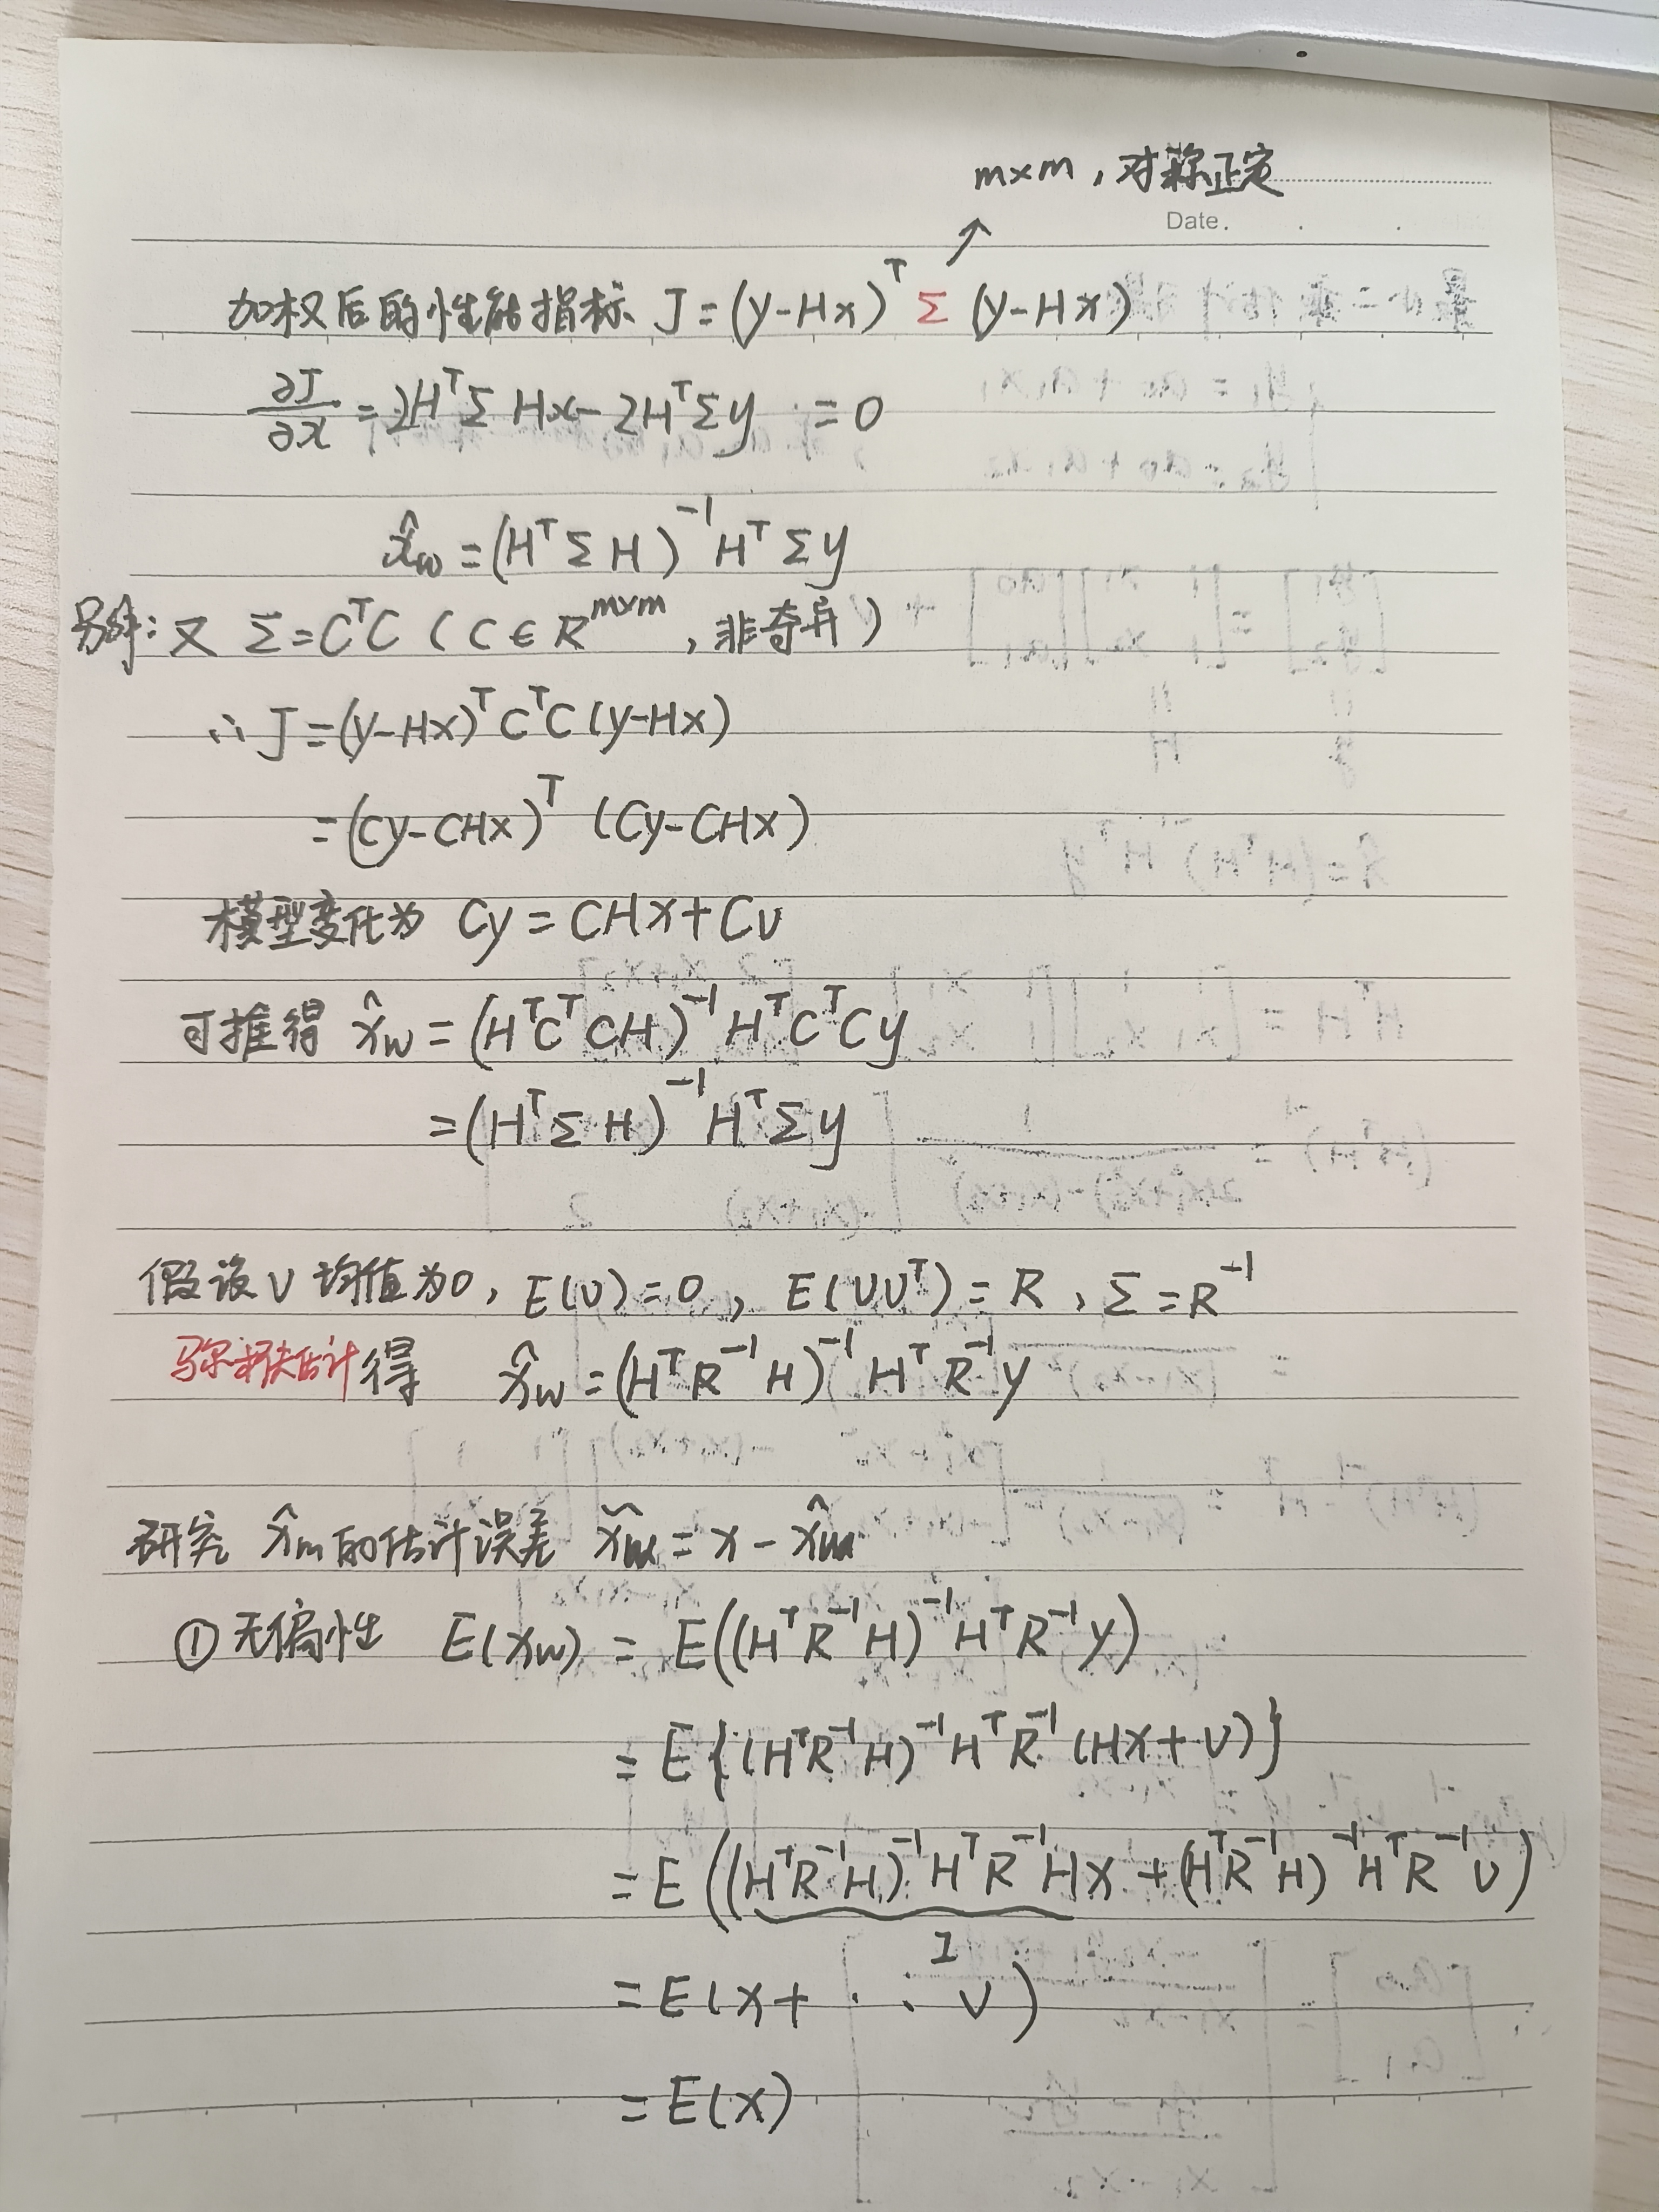 m×m，对称正定
Date.
加权后的性能指标 J=(y-Hx)ᵀ Σ (y-Hx)
∂J/∂x = 2HᵀΣHx - 2HᵀΣy = 0
x̂w = (HᵀΣH)⁻¹HᵀΣy
另解: 又 Σ=CᵀC (C∈Rᵐ×ᵐ, 非奇异)
∴J=(y-Hx)ᵀCᵀC(y-Hx)
=(Cy-CHx)ᵀ (Cy-CHx)
模型变化为 Cy=CHx+Cv
可推得 x̂w = (HᵀCᵀCH)⁻¹HᵀCᵀCy
=(HᵀΣH)⁻¹HᵀΣy
假设 v 均值为0, E(v)=0, E(vvᵀ)=R, Σ=R⁻¹
马尔科夫估计得 x̂w = (HᵀR⁻¹H)⁻¹HᵀR⁻¹y
研究 x̂m的估计误差 x̃m = x - x̂m
① 无偏性 E(xw) = E((HᵀR⁻¹H)⁻¹HᵀR⁻¹y)
= E{(HᵀR⁻¹H)⁻¹HᵀR⁻¹(Hx+v)}
= E((HᵀR⁻¹H)⁻¹HᵀR⁻¹Hx + (HᵀR⁻¹H)⁻¹HᵀR⁻¹v)
I
= E(x+ · · v)
= E(x)